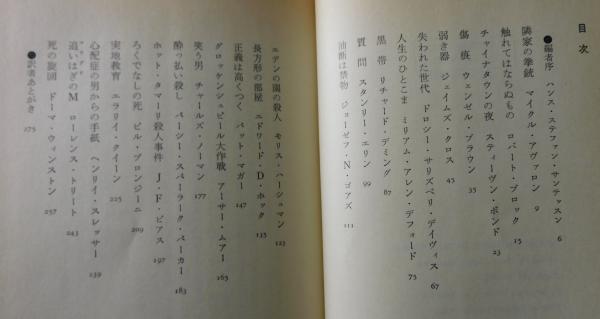 目次
●編者序 ハンス・ステファン・サンテッスン 6
隣家の拳銃 マイクル・アヴァロン 9
触れてはならぬもの ロバート・ブロック 15
チャイナタウンの夜 スティーヴン・ボンド 23
傷痕 ウェンゼル・ブラウン 35
弱き器 ジェイムズ・クロス 45
失われた世代 ドロシー・サリズベリ・デイヴィス 67
人生のひとこま ミリアム・アレン・デフォード 75
黒帯 リチャード・デミング 87
質問 スタンリー・エリン 99
油断は禁物 ジョーゼフ・N・ゴアズ 111
エデンの園の殺人 モリス・ハーシュマン 123
長方形の部屋 エドワード・D・ホック 135
正義は高くつく パット・マガー 147
グロッケンシュピール大作戦 アーサー・ムアー 165
笑う男 チャールズ・ノーマン 177
酔っ払い殺し パーシー・スパーラーク・パーカー 183
ホット・タマーリ殺人事件 J・F・ピアス 197
ろくでなしの死 ビル・プロンジーニ 209
実地教育 エラリイ・クイーン 225
心配症の男からの手紙 ヘンリイ・スレッサー 239
追いはぎのM ローレンス・トリート 243
死の旋回 ドーマ・ウィンストン 257
●訳者あとがき 275